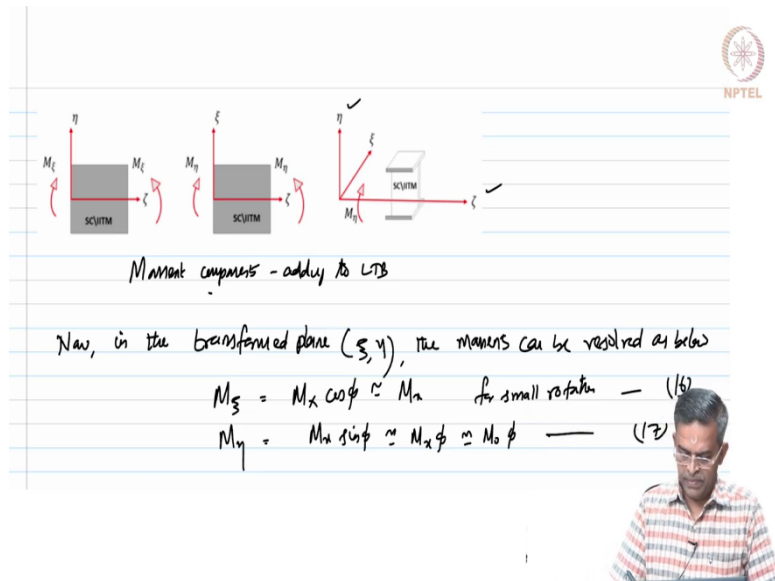 NPTEL
η ξ η
ξ
M_ξ M_ξ M_η M_η
ζ ζ ζ
SC\IITM SC\IITM SC\IITM
M_η
Moment components - adding to LTB
Now, in the transformed plane (ξ, η), the moments can be resolved as below
M_ξ = M_x cosϕ ≃ M_x for small rotation — (16)
M_η = M_x sinϕ ≃ M_x ϕ ≃ M_0 ϕ — (17)